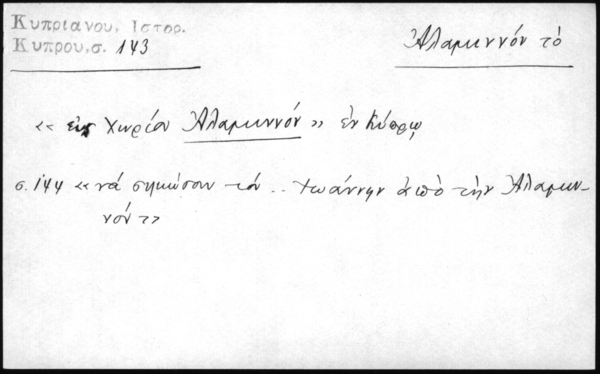 Κυπριανου, Ιστορ.
Κυπρου, σ. 143
Ἀλαμιννόν τὸ
« εις χωρίον Ἀλαμιννόν » ἐν Κύπρῳ
σ. 144 « νά σηκώσουν τόν .. Ἰωάννην ἀπὸ τὴν Ἀλαμιν-
νόν »